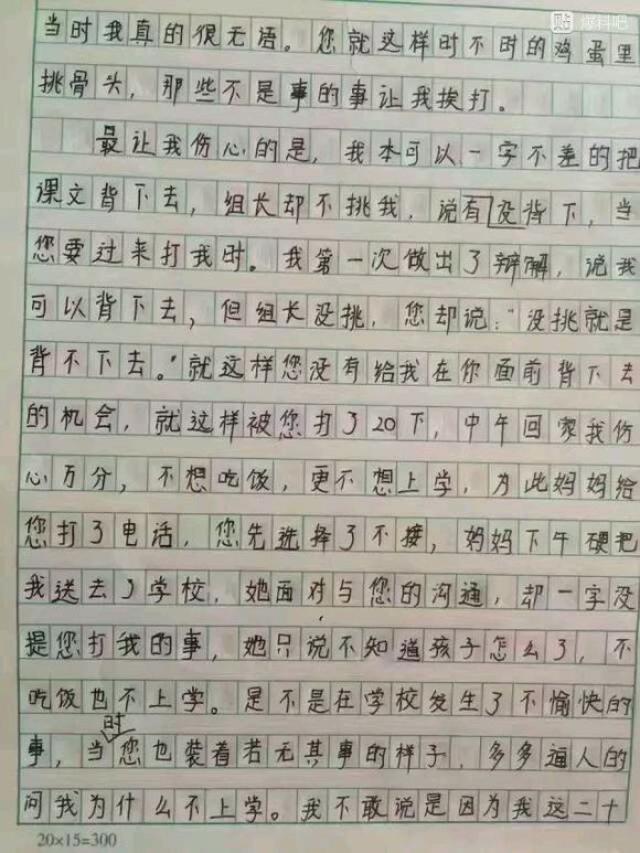 贴 爆料吧
当时我真的很无语。您就这样时不时的鸡蛋里
挑骨头，那些不是事的事让我挨打。
最让我伤心的是，我本可以一字不差的把
课文背下去，组长却不挑我，说有没背下，当
您要过来打我时。我第一次做出了辩解，说我
可以背下去，但组长没挑，您却说："没挑就是
背不下去。"就这样您没有给我在你面前背下去
的机会，就这样被您打了20下，中午回家我伤
心万分，不想吃饭，更不想上学，为此妈妈给
您打了电话，您先选择了不接，妈妈下午硬把
我送去了学校，她面对与您的沟通，却一字没
提您打我的事，她只说不知道孩子怎么了，不
吃饭也不上学。是不是在学校发生了不愉快的
事，当时您也装着若无其事的样子，多多逼人的
问我为什么不上学。我不敢说是因为我这二十
20×15=300